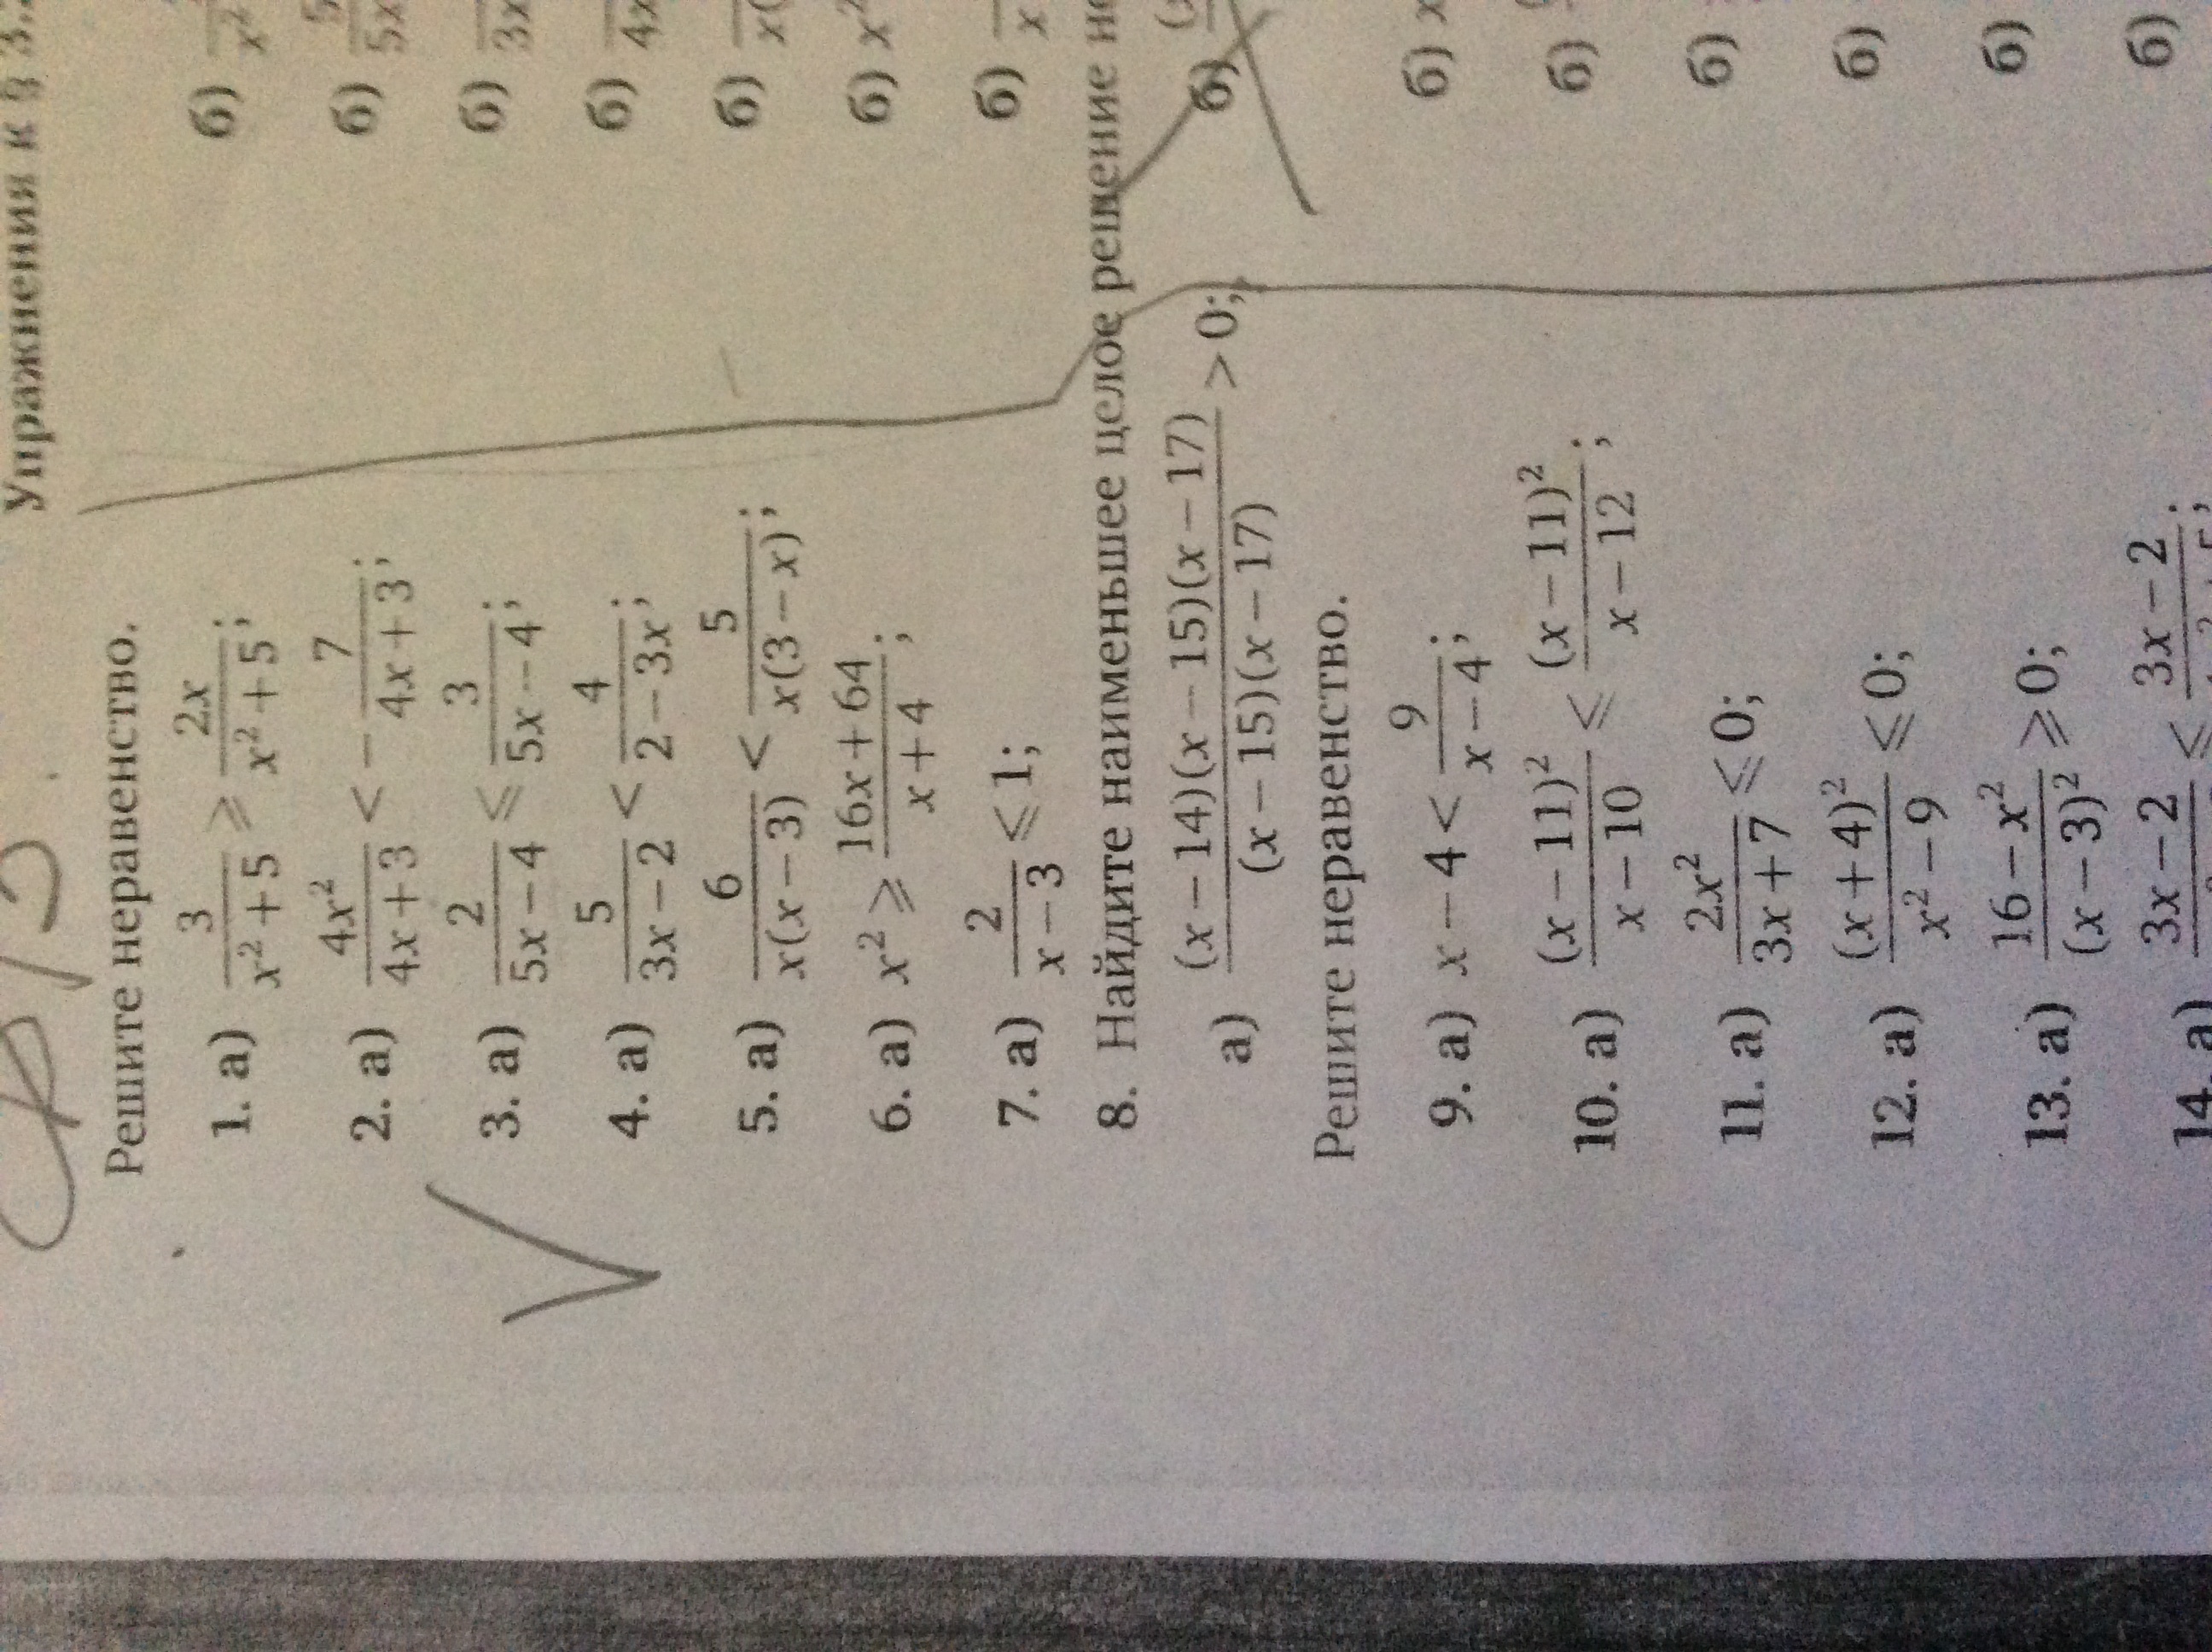 Упражнения к § 3.
Решите неравенство.
1. а) 3/(x² + 5) ⩾ 2x/(x² + 5); б)
2. а) 4x²/(4x + 3) < −7/(4x + 3); б)
3. а) 2/(5x − 4) ⩽ 3/(5x − 4); б)
4. а) 5/(3x − 2) < 4/(2 − 3x); б)
5. а) 6/(x(x − 3)) < 5/(x(3 − x)); б)
6. а) x² ⩾ (16x + 64)/(x + 4); б) x²
7. а) 2/(x − 3) ⩽ 1; б)
8. Найдите наименьшее целое решение не
а) (x − 14)(x − 15)(x − 17)/((x − 15)(x − 17)) > 0; б)
Решите неравенство.
9. а) x − 4 < 9/(x − 4); б) x
10. а) (x − 11)²/(x − 10) ⩽ (x − 11)²/(x − 12); б)
11. а) 2x²/(3x + 7) ⩽ 0; б)
12. а) (x + 4)²/(x² − 9) ⩽ 0; б)
13. а) (16 − x²)/(x − 3)² ⩾ 0; б)
14. а) 3x − 2 ⩽ 3x − 2; б)